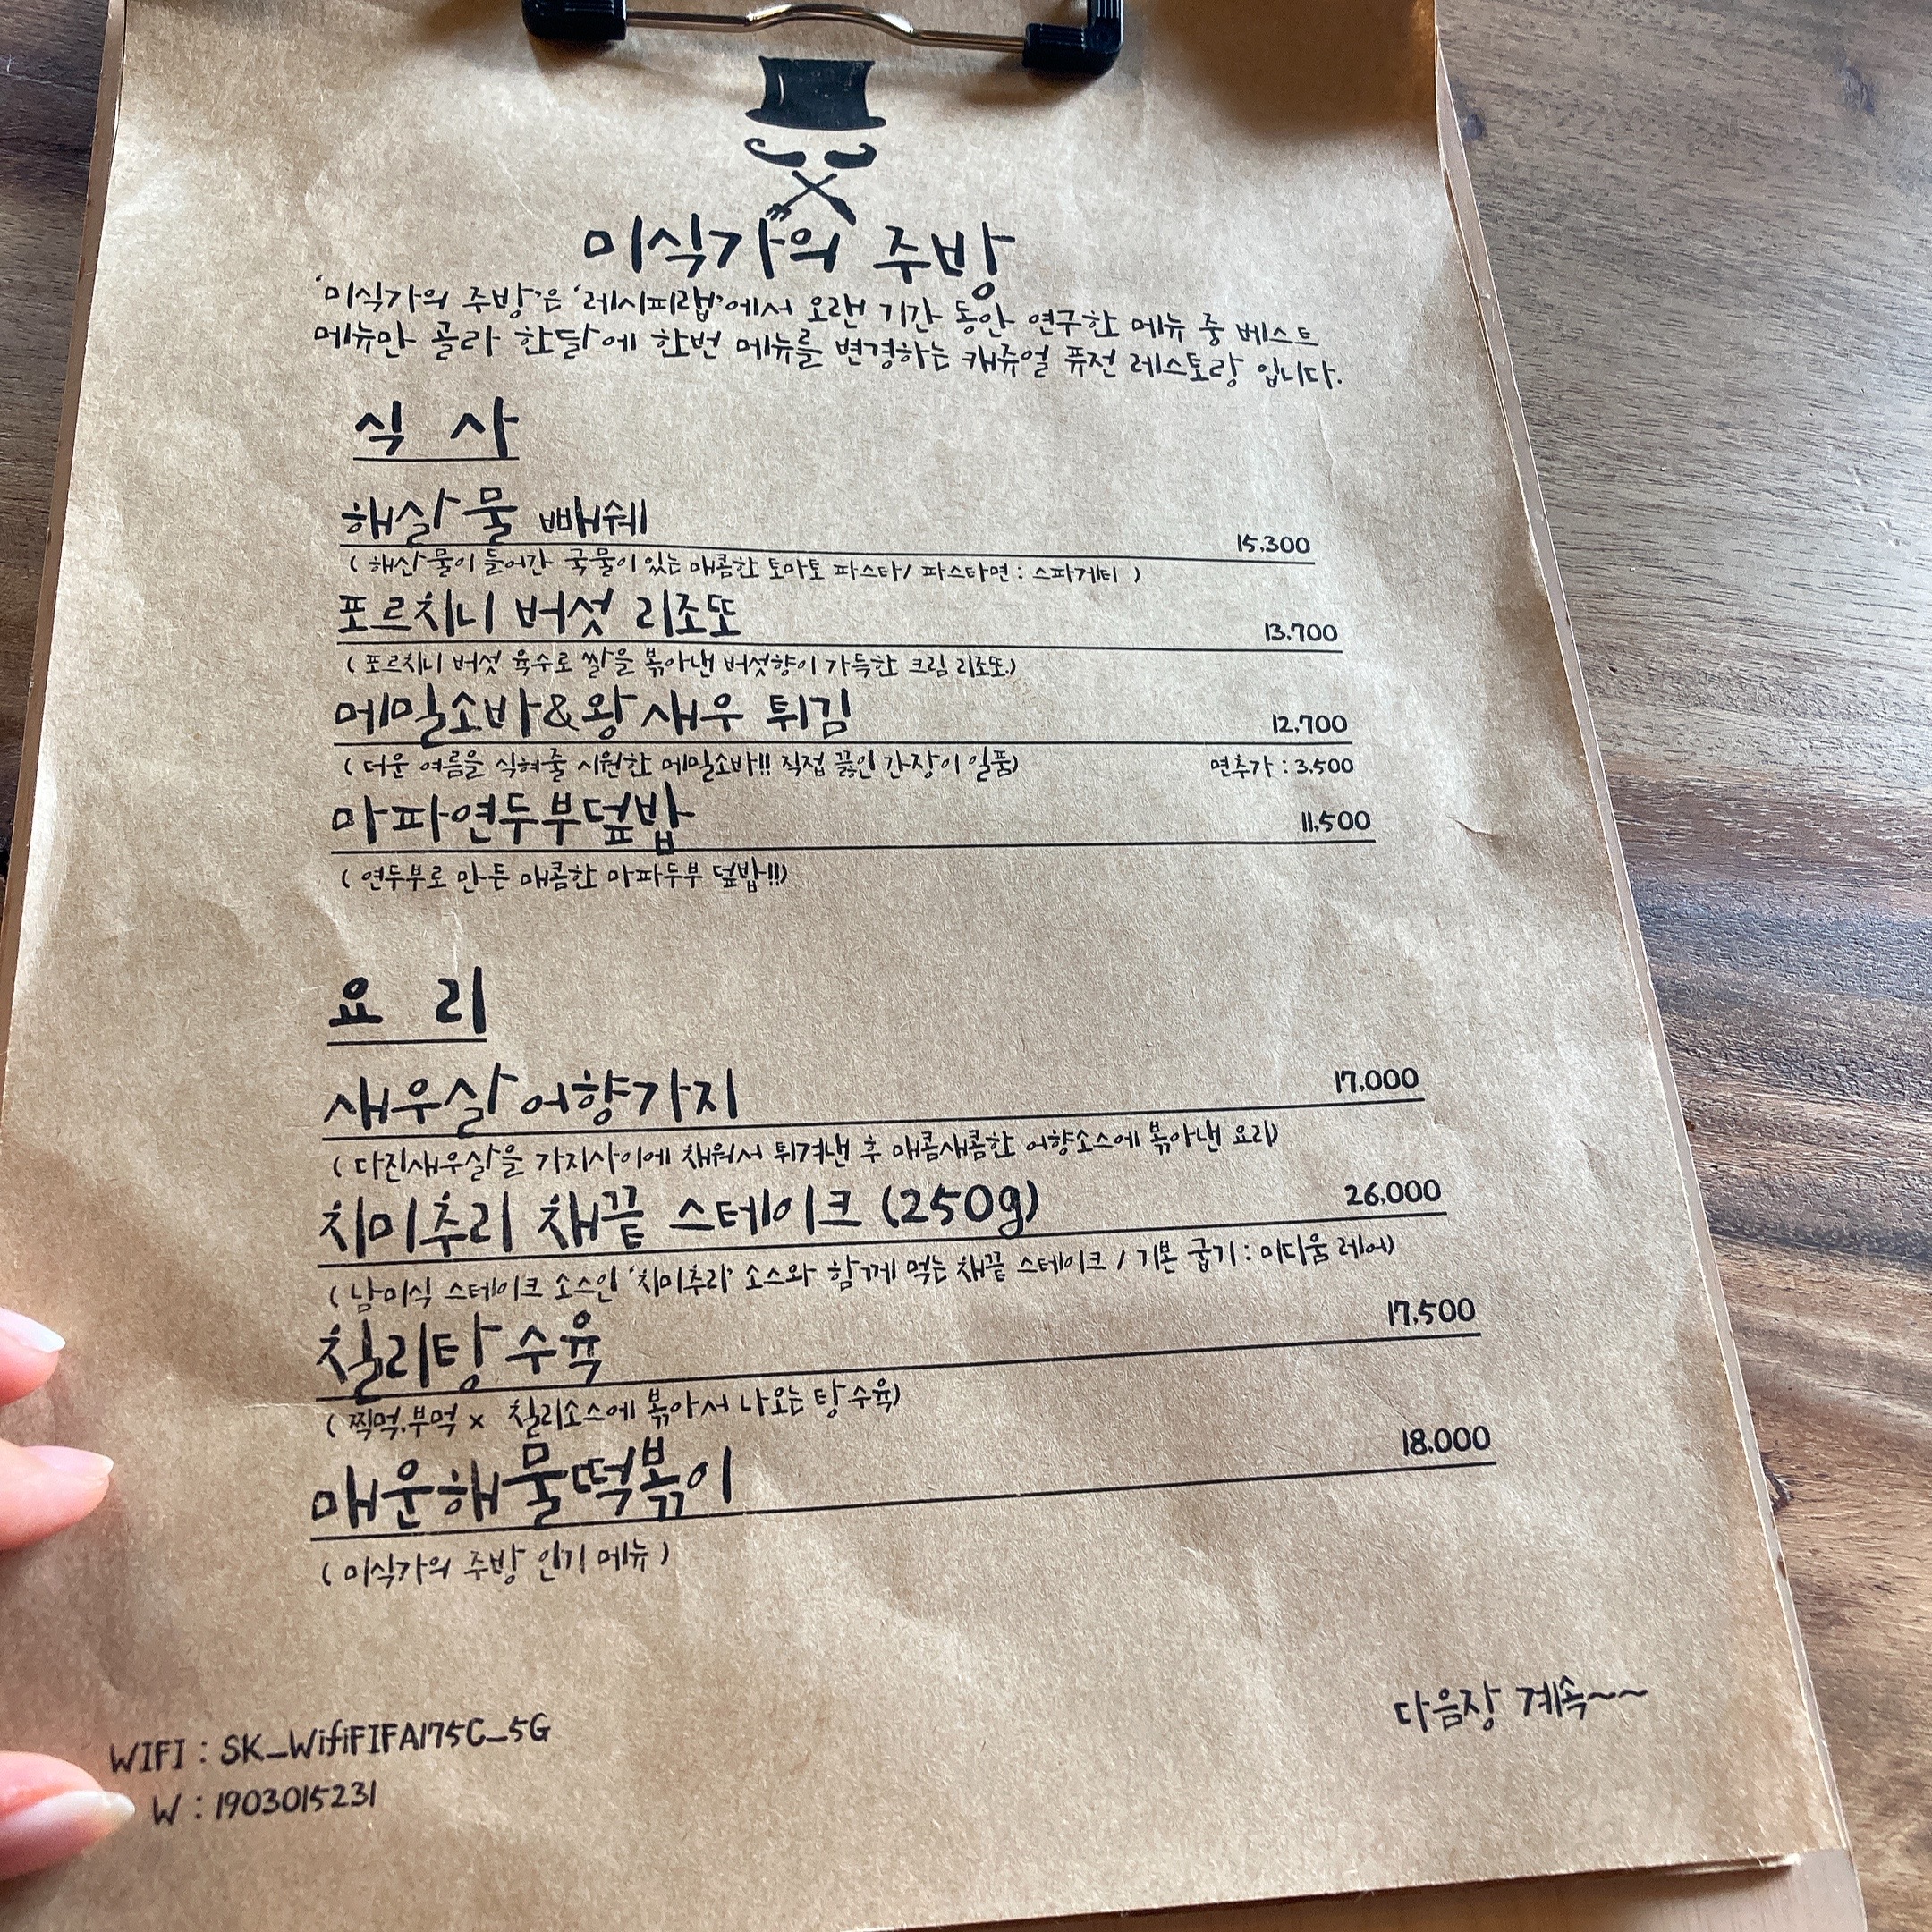 미식가의 주방
'미식가의 주방'은 '레시피랩'에서 오랜 기간 동안 연구한 메뉴 중 베스트
메뉴만 골라 한달에 한번 메뉴를 변경하는 캐쥬얼 퓨전 레스토랑 입니다.
식 사
해산물 빼쉐 15,300
( 해산물이 들어간 국물이 있는 매콤한 토마토 파스타/ 파스타면 : 스파게티 )
포르치니 버섯 리조또 13,700
( 포르치니 버섯 육수로 쌀을 볶아낸 버섯향이 가득한 크림 리조또.)
메밀소바&왕새우 튀김 12,700
( 더운 여름을 식혀줄 시원한 메밀소바!! 직접 끓인 간장이 일품) 면추가 : 3,500
마파연두부덮밥 11,500
( 연두부로 만든 매콤한 마파두부 덮밥!!!)
요 리
새우살어향가지 17,000
( 다진새우살을 가지사이에 채워서 튀겨낸 후 매콤새콤한 어향소스에 볶아낸 요리)
치미추리 채끝 스테이크 (250g) 26,000
( 남미식 스테이크 소스인 '치미추리' 소스와 함께 먹는 채끝 스테이크 / 기본 굽기 : 미디움 레어)
칠리탕수육 17,500
( 찍먹.부먹 x 칠리소스에 볶아서 나오는 탕수육)
매운해물떡볶이 18,000
( 미식가의 주방 인기 메뉴 )
다음장 계속~~
WIFI : SK_WifiFIFA175C_5G
W : 1903015231